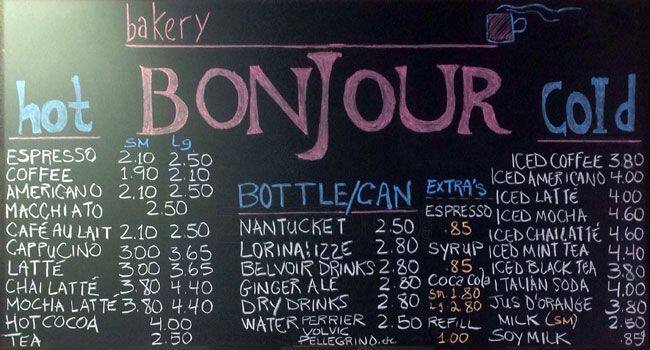 bakery
BONJOUR
hot
SM Lg
ESPRESSO 2.10 2.50
COFFEE 1.90 2.10
AMERICANO 2.10 2.50
MACCHIATO 2.50
CAFÉ AU LAIT 2.10 2.50
CAPPUCINO 3.00 3.65
LATTÉ 3.00 3.65
CHAI LATTÉ 3.80 4.40
MOCHA LATTÉ 3.80 4.40
HOT COCOA 4.00
TEA 2.50
BOTTLE/CAN
NANTUCKET 2.50
LORINA!IZZE 2.80
BELVOIR DRINKS 2.80
GINGER ALE 2.80
DRY DRINKS 2.80
WATER PERRIER 2.50
VOLVIC
PELLEGRINO.etc
EXTRA'S
ESPRESSO
.85
SYRUP
.85
Coca Cola
Sm. 1.80
Lg 2.80
REFILL
1.00
Cold
ICED COFFEE 3.80
ICED AMERICANO 4.00
ICED LATTÉ 4.00
ICED MOCHA 4.60
ICED CHAI LATTÉ 4.60
ICED MINT TEA 4.40
ICED BLACK TEA 3.80
ITALIAN SODA 4.00
JUS D'ORANGE 3.80
MILK (SM) 2.50
SOY MILK .85